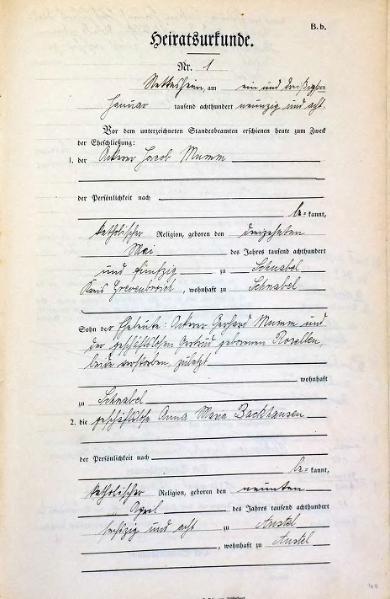 B. b.
Heiratsurkunde.
Nr. 1
Nettesheim, am ein und dreißigsten
Januar tausend achthundert neunzig und acht.
Vor dem unterzeichneten Standesbeamten erschienen heute zum Zweck
der Eheschließung:
1. der Ackerer Jacob Mumm
der Persönlichkeit nach
be kannt,
katholischer Religion, geboren den dreizehnten
Mai des Jahres tausend achthundert
und fünfzig zu Schnabel
Kreis Grevenbroich, wohnhaft zu Schnabel
Sohn der Eheleute: Ackerer Gerhard Mumm und
der geschäftslosen Gertrud geborenen Rosellen,
beide verstorben, zuletzt
wohnhaft
zu Schnabel
2. die geschäftslose Anna Maria Backhausen
der Persönlichkeit nach
be kannt,
katholischer Religion, geboren den neunten
April des Jahres tausend achthundert
sechszig und acht zu Anstel
, wohnhaft zu Anstel